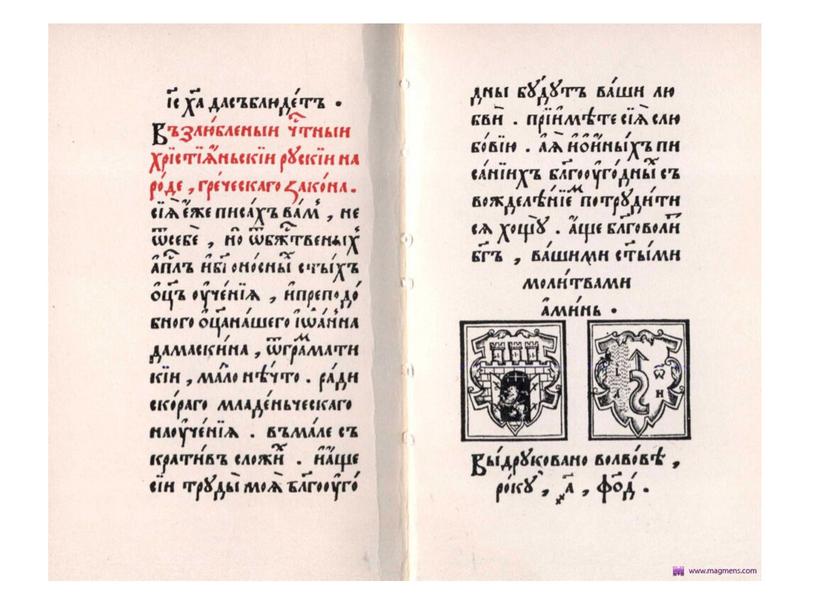 і҃с х҃а дасъблюде́тъ .
Възлю́бленыи чⷭ҇тныи
хрїстїѧ́ньскїи рꙋскїи на
ро́де , гре́ческаго зако́на .
сїѧ̀ е҆́же писа́хъ ва́мъ , не
ѿсебѐ , но̀ ѿбжⷭ҇твеныхъ
а҆пⷭ҇лъ и҆бг҃оно́сныи ст҃ы́хъ
ѻ҆ц҃ъ ᲂу҆че́нїѧ , и҆преподо́
бного ѻ҆ц҃ана́шего і҆ѡа́нна
дамаски́на , ѿгра́мати
кїи , ма́ло нѣ́что . ра́ди
ско́раго младе́ньческаго
наᲂу҆че́нїѧ . въма́ле съ
крати́въ сложи́хъ . и҆а҆́ще
сїи трꙋды̀ моѧ̀ бл҃гоᲂу҆го́
дны бꙋ́дꙋтъ ва́ши лю
бви̑ . прїи҆мѣ́те сїѧ̀ слю
бо́вїю . а҆ѧ҆̀ и҆ѡ҆и҆́ныхъ пи
са́нїихъ бл҃гоᲂу҆го́дныи съ
вожделѣ́нїемъ потрꙋди́ти
сѧ хощꙋ̀ . а҆́ще бл҃говоли́тъ
бг҃ъ , ва́шими ст҃ы́ми
моли́твами
а҆ми́нь .
ѿ
н
Вы́дрꙋковано волво́вѣ ,
ро́кꙋ , ҂а҃ , фо҃д .
www.magmens.com